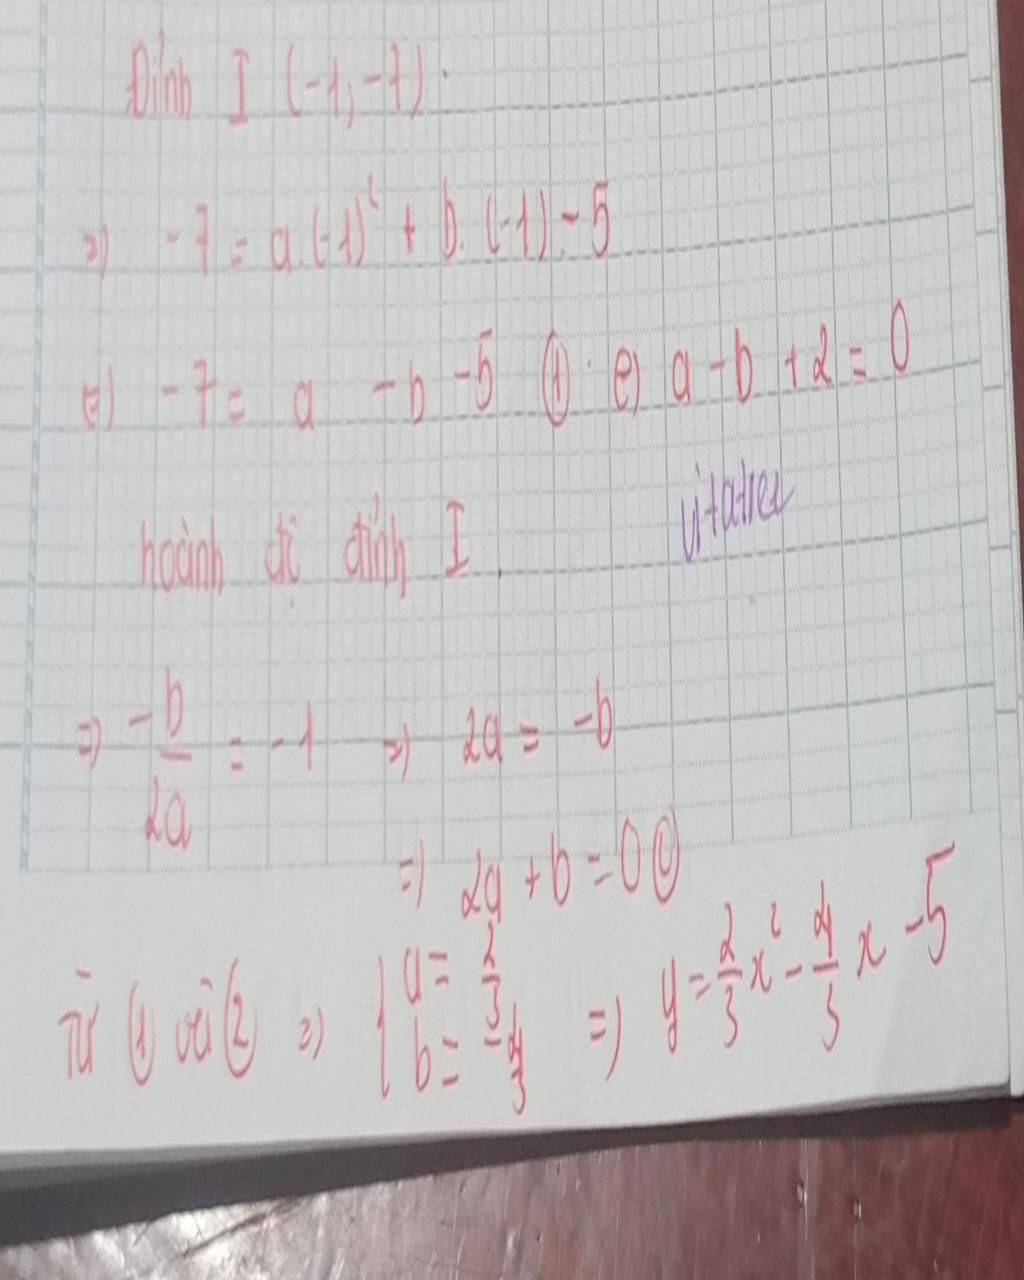 Đỉnh I (-1, -7).
=> -7 = a.(-1)² + b.(-1) - 5
<=> -7 = a - b - 5 ① <=> a - b + 2 = 0
hoành độ đỉnh I.
=> -b/2a = -1 => 2a = -b
=> 2a + b = 0
Từ (1) và (2) => { a = 2/3 b = -4/3 => y = 2/3 x² - 4/3 x - 5